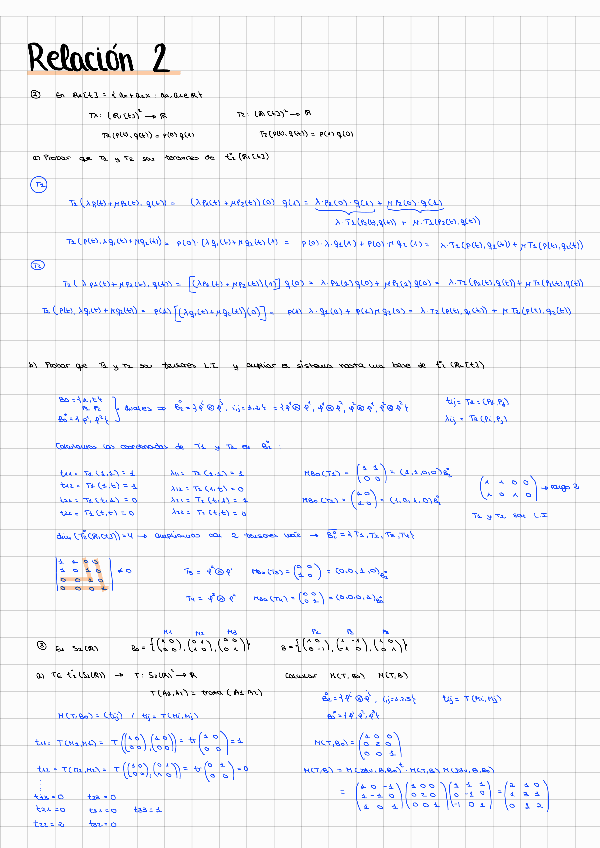 Relación 2
② En R₁[t] = { a₀+a₁x : a₀,a₁∈R }
T₁: (R₁[t])² → R T₂: (R₁[t])² → R
T₁(p(t),q(t)) = p(0) q(1) T₂(p(t),q(t)) = p(1) q(0)
a) Probar que T₁ y T₂ son tensores de
T₁
T₁(λp₁(t)+μp₂(t), q(t)) = (λp₁(t)+μp₂(t))(0) q(1) = λ·p₁(0)·q(1) + μp₂(0)·q(1)
λ·T₁(p₁(t),q(t)) + μ·T₁(p₂(t),q(t))
T₁(p(t), λq₁(t)+μq₂(t)) = p(0)·(λq₁(t)+μq₂(t))(1) = p(0)·λ·q₁(1) + p(0)·μq₂(1) = λ·T₁(p(t),q₁(t)) + μT₁(p(t),q₂(t))
T₂
T₂(λp₁(t)+μp₂(t), q(t)) = [(λp₁(t)+μp₂(t))(1)] q(0) = λ·p₁(1)q(0) + μp₂(1)q(0) = λ·T₂(p₁(t),q(t)) + μT₂(p₂(t),q(t))
T₂(p(t), λq₁(t)+μq₂(t)) = p(1)[(λq₁(t)+μq₂(t))(0)] = p(1)·λ·q₁(0) + p(1)μq₂(0) = λ·T₂(p(t),q₁(t)) + μT₂(p(t),q₂(t))
b) Probar que T₁ y T₂ son tensores L.I. y ampliar el sistema hasta una base de
B₀ = {1, t}
p₁ p₂
B₀* = {φ¹, φ²} duales ⇒ B₂* = {φⁱ⊗φʲ, i,j=1,2} = {φ¹⊗φ¹, φ¹⊗φ², φ²⊗φ¹, φ²⊗φ²}
tij = T₁(pi,pj)
λij = T₂(pi,pj)
Calculamos las coordenadas de T₁ y T₂ en B₂* :
t₁₁ = T₁(1,1) = 1 λ₁₁ = T₂(1,1) = 1
t₁₂ = T₁(1,t) = 1 λ₁₂ = T₂(1,t) = 0
t₂₁ = T₁(t,1) = 0 λ₂₁ = T₂(t,1) = 1
t₂₂ = T₁(t,t) = 0 λ₂₂ = T₂(t,t) = 0
MB₀(T₁) = (1 1 / 0 0) = (1,1,0,0)B₂*
MB₀(T₂) = (1 0 / 1 0) = (1,0,1,0)B₂*
(1 1 0 0 / 1 0 1 0) → rango 2
T₁ y T₂ son L.I
= 4 → ampliamos con 2 tensores más → B₂* = {T₁, T₂, T₃, T₄}
|1 1 0 0|
|1 0 1 0| ≠ 0
|0 0 1 0|
|0 0 0 1|
T₃ = φ²⊗φ¹ MB₀(T₃) = (0 0 / 1 0) = (0,0,1,0)B₂*
T₄ = φ²⊗φ² MB₀(T₄) = (0 0 / 0 1) = (0,0,0,1)B₂*
M1 M2 M3 P1 P2 P3
③ En S₂(R) B₀ = {(1 0 / 0 0), (0 1 / 1 0), (0 0 / 0 1)} B = {(1 0 / 0 -1), (1 -1 / -1 0), (1 0 / 0 1)}
a) T: S₂(R)² → R Calcular M(T,B₀) M(T,B)
T(A₁,A₂) = traza (A₁ A₂)
B₂* = {φⁱ⊗φʲ, i,j=1,2,3} tij = T(Mi,Mj)
B₀* = {φ¹,φ²,φ³}
M(T,B₀) = (tij) / tij = T(Mi,Mj)
t₁₁ = T(M₁,M₁) = T((1 0 / 0 0),(1 0 / 0 0)) = tr(1 0 / 0 0) = 1
t₁₂ = T(M₁,M₂) = T((1 0 / 0 0),(0 1 / 1 0)) = tr(0 1 / 0 0) = 0
⋮
t₁₃ = 0 t₂₃ = 0
t₂₁ = 0 t₃₁ = 0 t₃₃ = 1
t₂₂ = 2 t₃₂ = 0
M(T,B₀) = (1 0 0 / 0 2 0 / 0 0 1)
M(T,B) = M(Idv,B,B₀)ᵗ·M(T,B₀)·M(Idv,B,B₀)
= (1 0 -1 / 1 -1 0 / 1 0 1) (1 0 0 / 0 2 0 / 0 0 1) (1 1 1 / 0 -1 0 / -1 0 1) = (2 1 0 / 1 3 1 / 0 1 2)